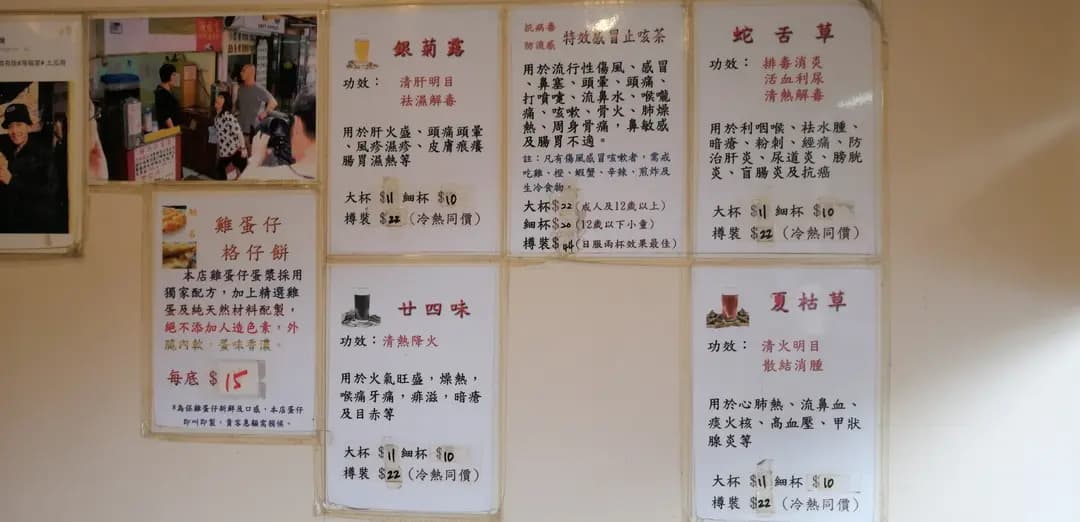 銀菊露
功效： 清肝明目
祛濕解毒
用於肝火盛、頭痛頭暈
、風疹濕疹、皮膚痕癢
腸胃濕熱等
大杯 $11 細杯 $10
樽裝 $22 (冷熱同價)
抗病毒
防流感
特效感冒止咳茶
用於流行性傷風、感冒
、鼻塞、頭暈、頭痛、
打噴嚏、流鼻水、喉嚨
痛、咳嗽、骨火、肺燥
熱、周身骨痛，鼻敏感
及腸胃不適。
註：凡有傷風感冒咳嗽者，需戒
吃雞、橙、蝦蟹、辛辣、煎炸及
生冷食物。
大杯$22(成人及12歲以上)
細杯$20(12歲以下小童)
樽裝$44(日服兩杯效果最佳)
蛇舌草
功效： 排毒消炎
活血利尿
清熱解毒
用於利咽喉、祛水腫、
暗瘡、粉刺、經痛、防
治肝炎、尿道炎、膀胱
炎、盲腸炎及抗癌
大杯 $11 細杯 $10
樽裝 $22 (冷熱同價)
雞蛋仔
格仔餅
本店雞蛋仔蛋漿採用
獨家配方，加上精選雞
蛋及純天然材料配製，
絕不添加人造色素，外
脆內軟，蛋味香濃。
每底 $15
#為保雞蛋仔新鮮及口感，本店蛋仔
即叫即製，貴客急顧需預候。
廿四味
功效：清熱降火
用於火氣旺盛，燥熱，
喉痛牙痛，痱滋，暗瘡
及目赤等
大杯 $11 細杯 $10
樽裝 $22 (冷熱同價)
夏枯草
功效： 清火明目
散結消腫
用於心肺熱、流鼻血、
痰火核、高血壓、甲狀
腺炎等
大杯 $11 細杯 $10
樽裝 $22 (冷熱同價)